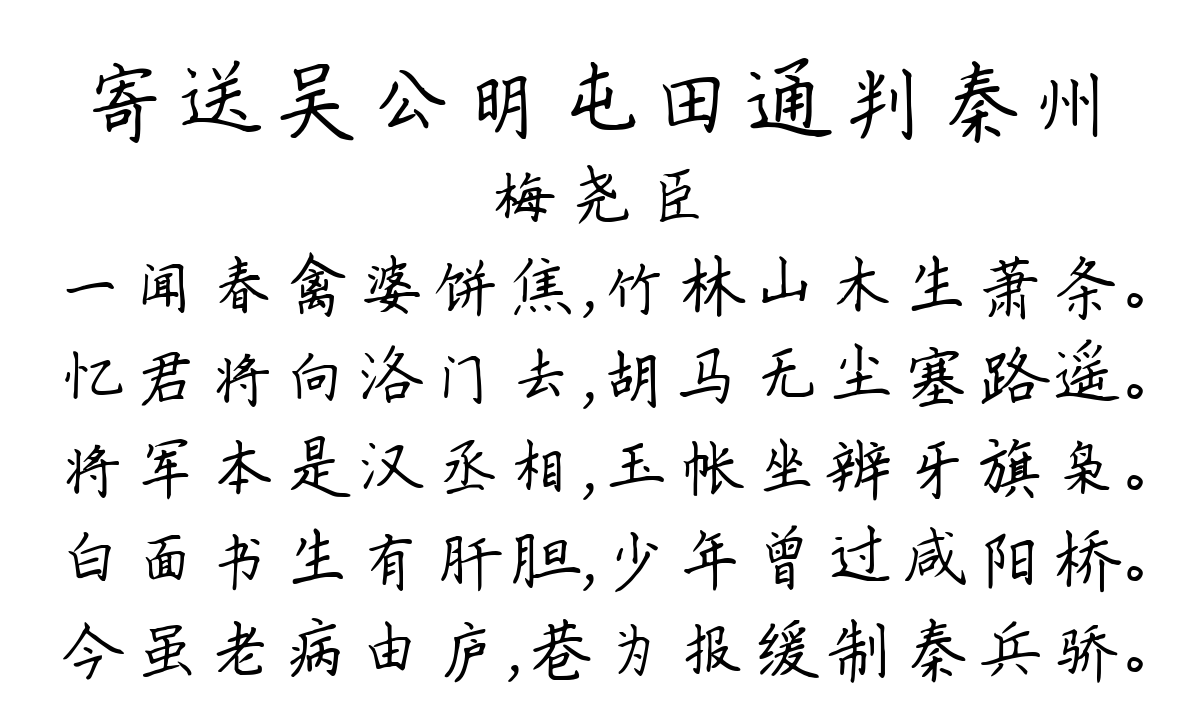 寄送吴公明屯田通判秦州
梅尧臣
一闻春禽婆饼焦,竹林山木生萧条。
忆君将向洛门去,胡马无尘塞路遥。
将军本是汉丞相,玉帐坐辨牙旗枭。
白面书生有肝胆,少年曾过咸阳桥。
今虽老病由庐,巷为报缓制秦兵骄。